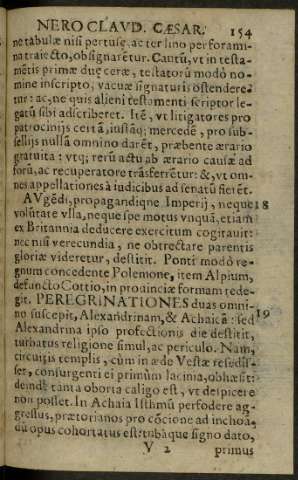 NERO CLAVD. CÆSAR. 154
ne tabulæ nisi pertusę, ac ter lino per foramina
traiecto, obsignarẽtur. Cautũ, vt in testa-
mẽtis primæ duę ceræ, testatorũ modò no-
mine inscripto, vacuæ signaturis ostenderẽ-
tur: ac, ne quis alieni testamenti scriptor le-
gatũ sibi adscriberet. Itẽ, vt litigatores pro
patrocinijs certã, iustãq; mercedẽ, pro sub-
sellijs nullã omnino darẽt, præbente ærario
gratuita: vtq; rerũ actu ab ærario causæ ad
forũ, ac recuperatore trãsferrẽtur: &, vt om-
nes appellationes à iudicibus ad senatũ fierẽt.
AVgẽdi, propagandiqne Imperij, neque 18
volũtate vlla, neque spe motus vnquã, etiam
ex Britannia deducere exercitum cogitauit:
nec nisi verecundia, ne obtrectare parentis
gloriæ videretur, destitit. Ponti modò re-
gnum concedente Polemone, item Alpium,
defuncto Cottio, in prouinciæ formam rede-
git. PEREGRINATIONES duas omni-
no suscepit, Alexandrinam, & Achaicã: sed 19
Alexandrina ipso profectionis die destitit,
turbatus religione simul, ac periculo. Nam,
circuitis templis, cùm in æde Vestæ resedis-
set, consurgenti ei primùm lacinia, obhæsit:
deindè tanta oborta caligo est, vt despicere
non posset. In Achaia Isthmũ perfodere ag-
gressus, prætorianos pro cõcione ad inchoã-
dũ opus cohortatus est: tubàque signo dato,
V 2 primus